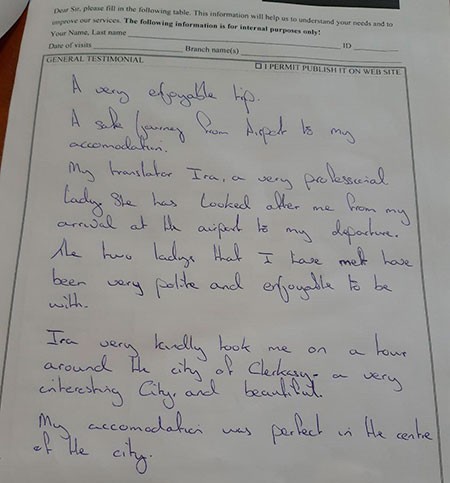 Dear Sir, please fill in the following table. This information will help us to understand your needs and to
improve our services. The following information is for internal purposes only!
Your Name, Last name
ID
Date of visits
Branch name(s)
GENERAL TESTIMONIAL
I PERMIT PUBLISH IT ON WEB SITE
A very enjoyable trip.
A safe journey from Airport to my
accomodation.
My translator Ira, a very professional
lady. She has looked after me from my
arrival at the airport to my departure.
The two ladys that I have met have
been very polite and enjoyable to be
with.
Ira very kindly took me on a tour
around the city of Cherkasy - a very
interesting City, and beautiful.
My accomodation was perfect in the centre
of the city.